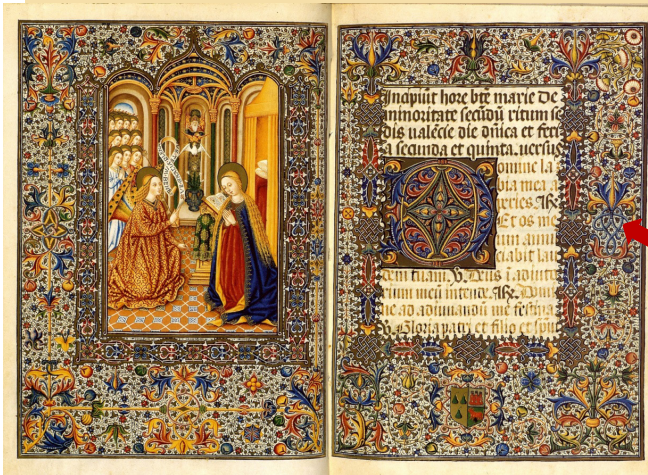 Incipiūt hore bt̄e marie de
minoritate secūdū ritum se
dis valēcie die dn̄ica et feri
a secunda et quinta. versus
omine la
bia mea a
peries. 
Et os me
um annū
ciabit lau
dem tuam V. Deus ī adiuto
rium meū intende.
ne ad adiuuandū me festina
V. Gloria patri et filio et spui